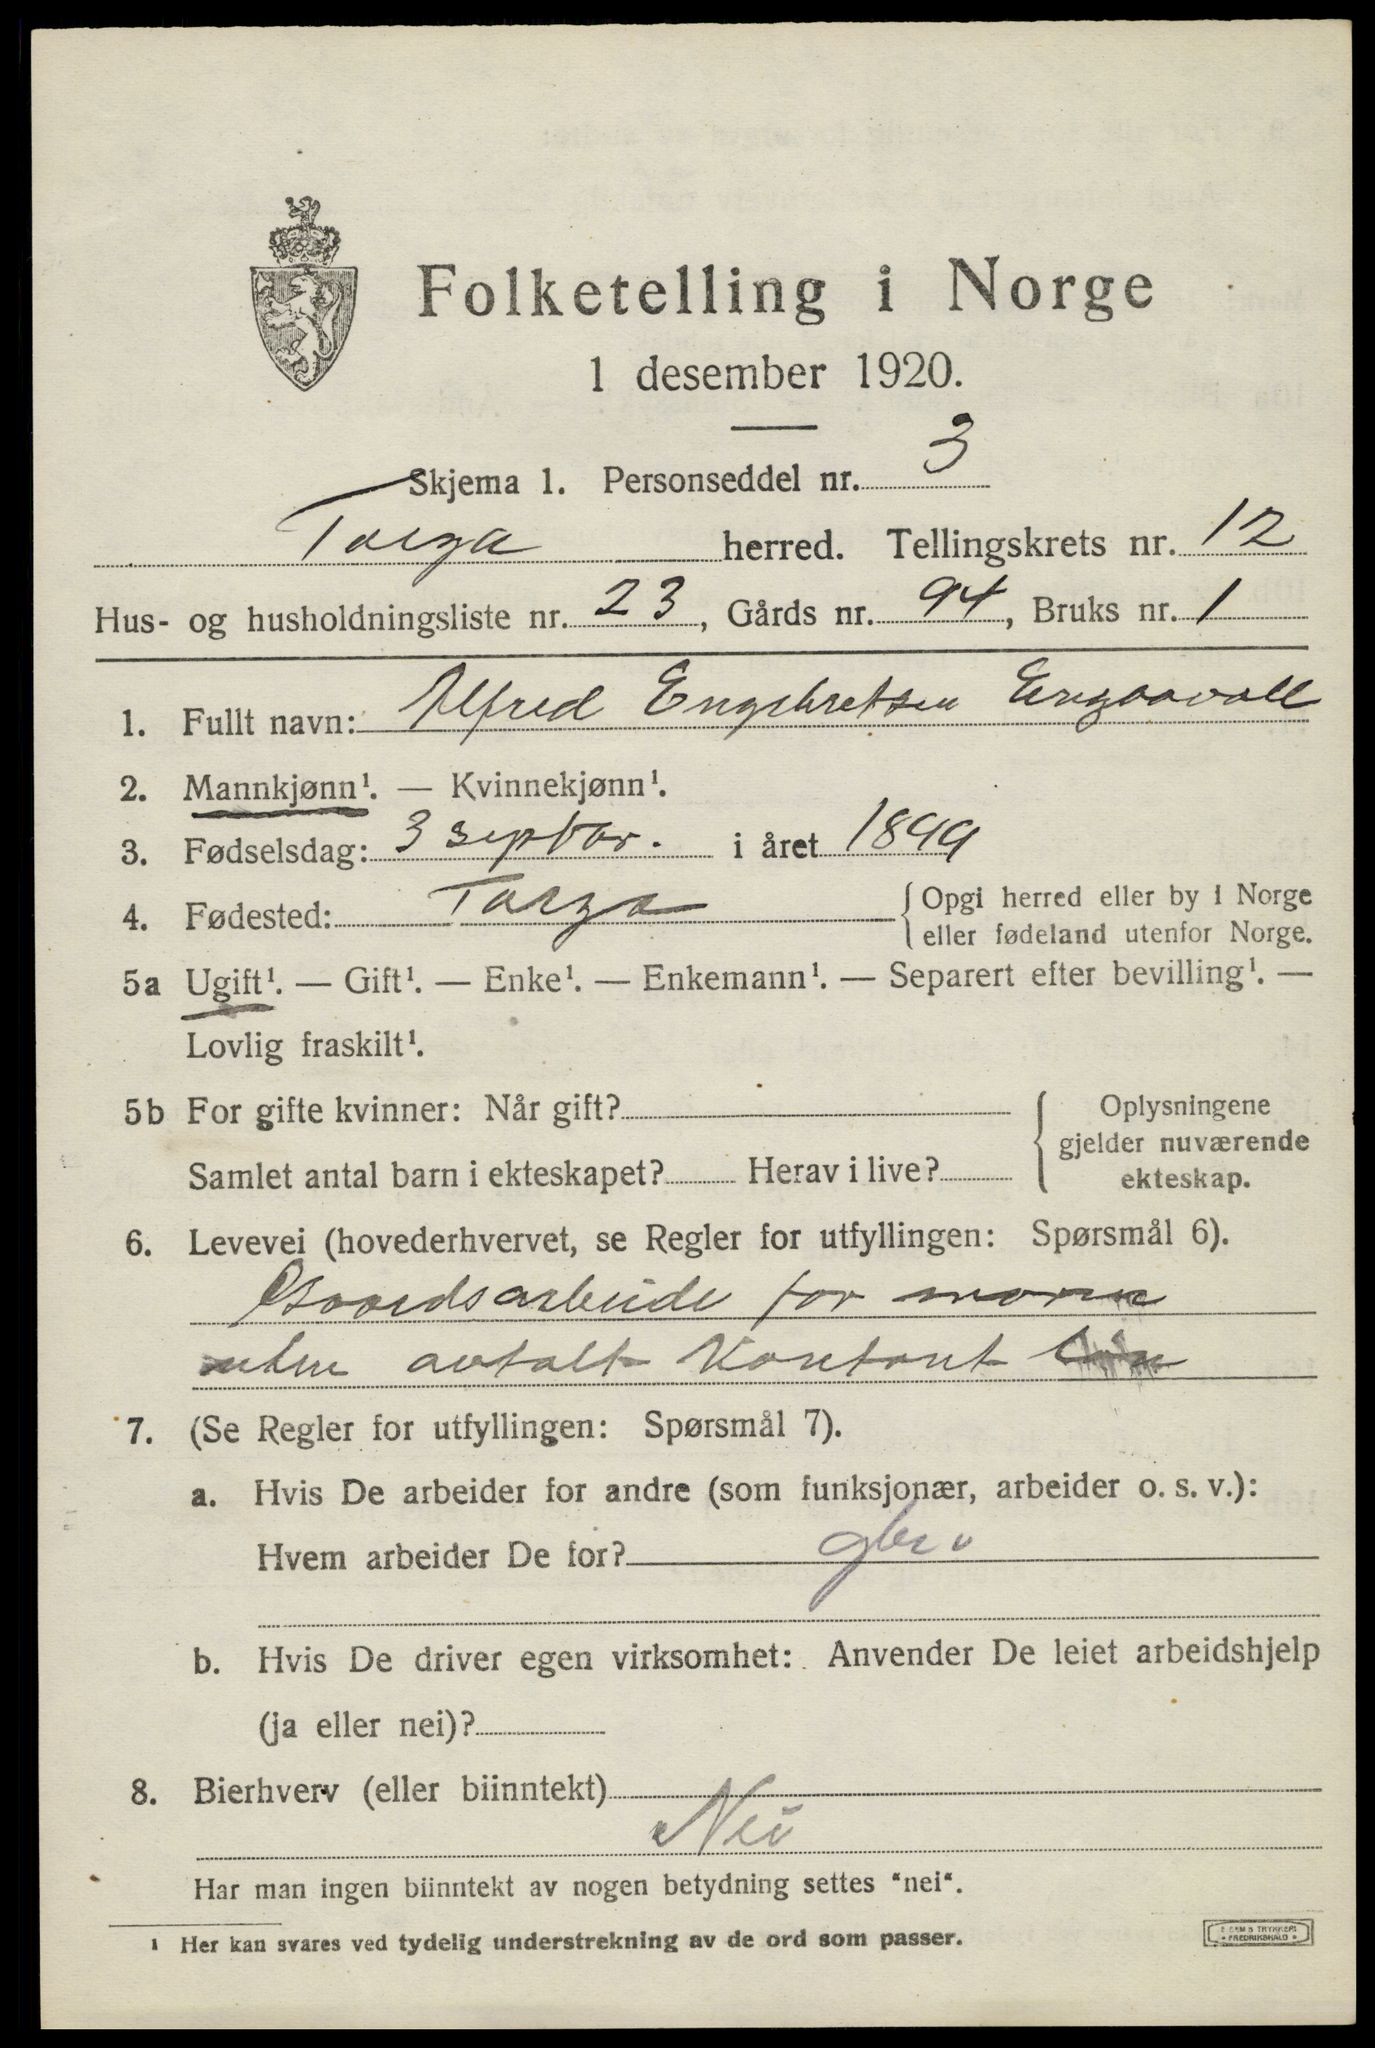 Folketelling i Norge
1 desember 1920.
Skjema 1. Personseddel nr. 3
Torga herred. Tellingskrets nr. 12
Hus- og husholdningsliste nr. 23, Gårds nr. 94, Bruks nr. 1
1. Fullt navn: Alfred Engebretsen Engaavoll
2. Mannkjønn¹. — Kvinnekjønn¹.
3. Fødselsdag: 3 septbr. i året 1899
4. Fødested: Torga { Opgi herred eller by i Norge
eller fødeland utenfor Norge.
5a Ugift¹. — Gift¹. — Enke¹. — Enkemann¹. — Separert efter bevilling¹. —
Lovlig fraskilt¹.
5b For gifte kvinner: Når gift? { Oplysningene
gjelder nuværende
Samlet antal barn i ekteskapet? Herav i live? ekteskap.
6. Levevei (hovederhvervet, se Regler for utfyllingen: Spørsmål 6).
Gaardsarbeide for
uten avtalt Kontant
7. (Se Regler for utfyllingen: Spørsmål 7).
a. Hvis De arbeider for andre (som funksjonær, arbeider o. s. v.):
Hvem arbeider De for?
b. Hvis De driver egen virksomhet: Anvender De leiet arbeidshjelp
(ja eller nei)?
8. Bierhverv (eller biinntekt)
Nei
Har man ingen biinntekt av nogen betydning settes "nei".
¹ Her kan svares ved tydelig understrekning av de ord som passer.